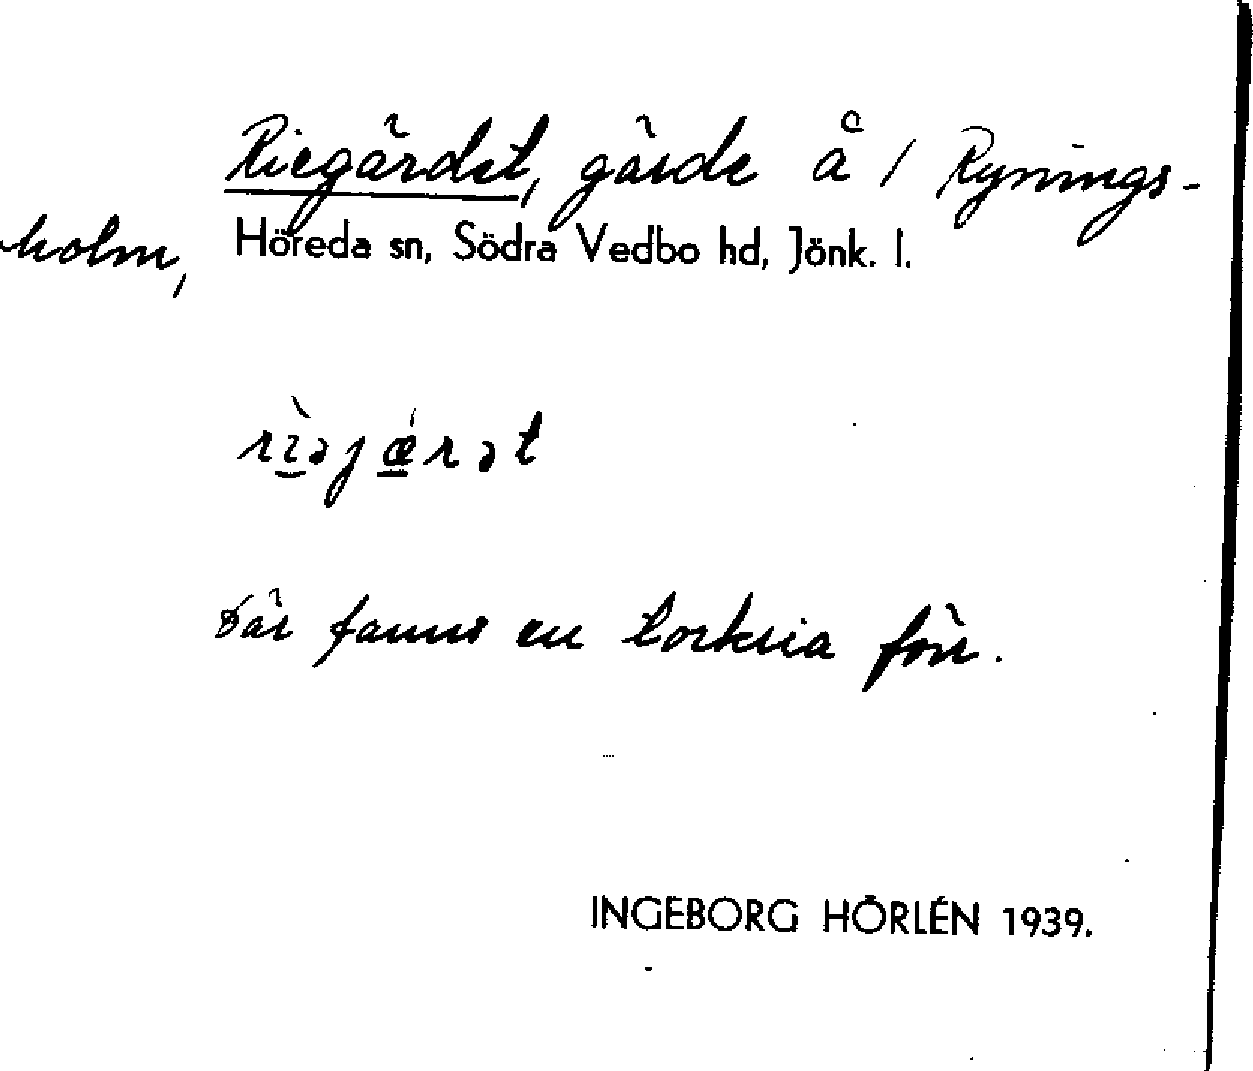 Riegärdet, gärde å / Rynings-
holm,
Höreda sn, Södra Vedbo hd, Jönk. l.
rìəjǽrət
Där fanns en torkria förr.
INGEBORG HÖRLÉN 1939.